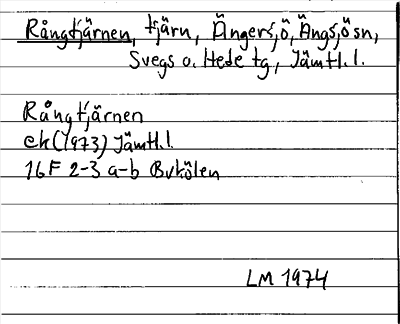 Rångtjärnen, tjärn, Ängersjö, Ängsjö sn,
Svegs o. Hede tg, Jämtl. l.
Rångtjärnen
ek (1973) Jämtl. l.
16F 2-3 a-b Bvkölen
LM 1974